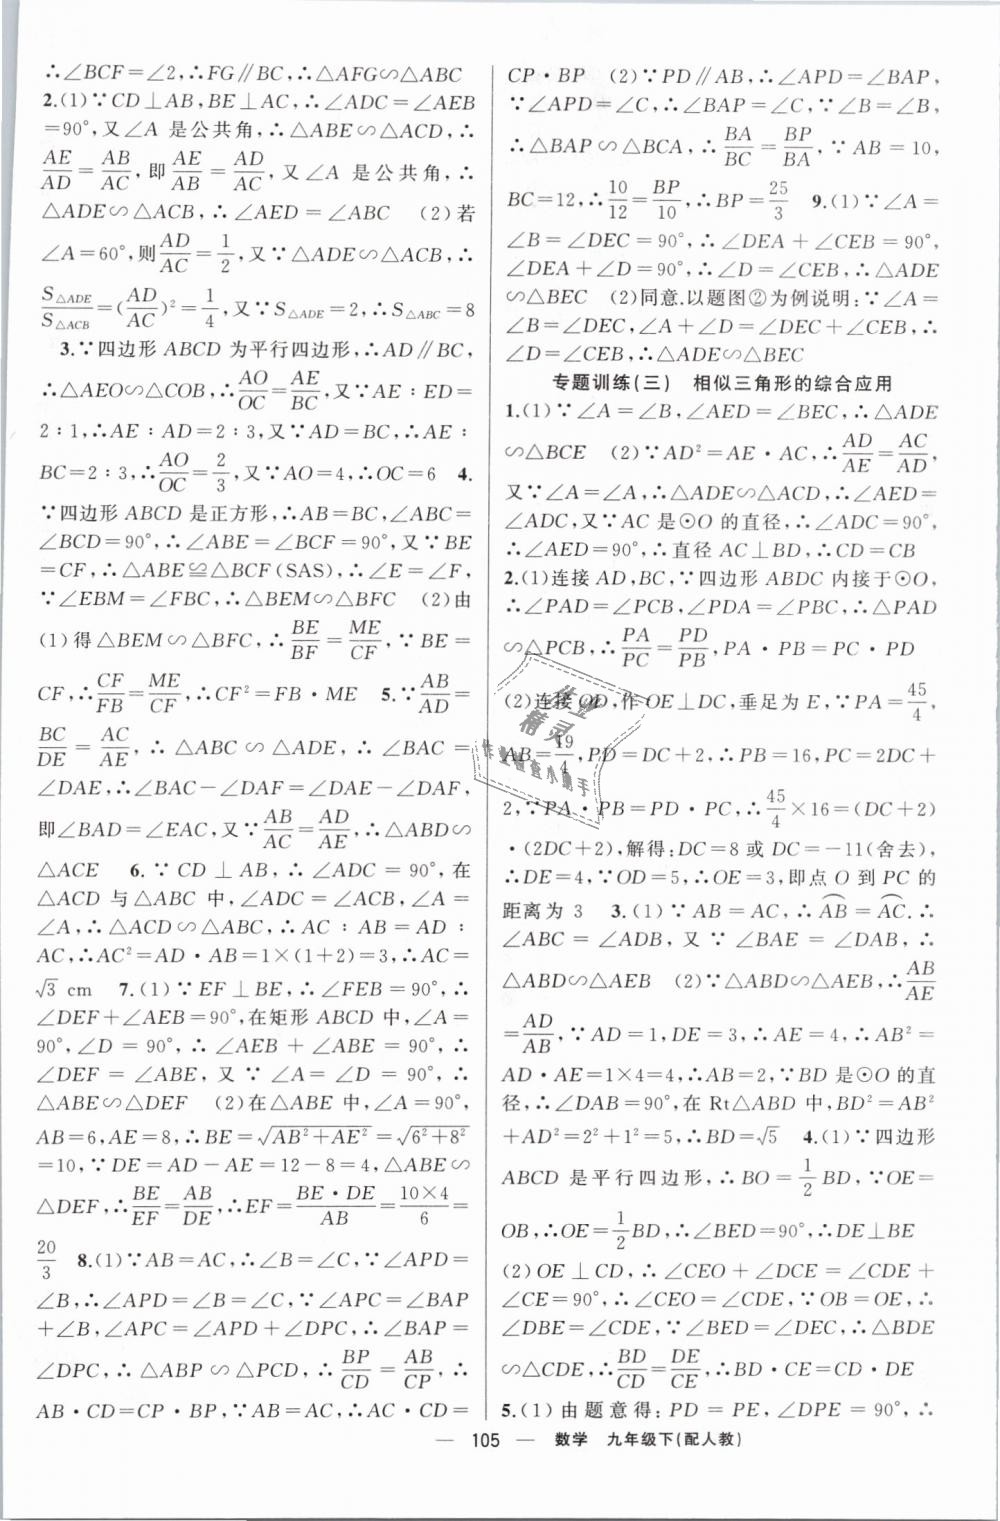 ∴∠BCF=∠2,∴FG∥BC,∴△AFG∽△ABC
2.(1)∵CD⊥AB,BE⊥AC,∴∠ADC=∠AEB
=90°,又∠A 是公共角,∴△ABE∽△ACD,∴
AE/AD=AB/AC,即AE/AB=AD/AC,又∠A 是公共角,∴
△ADE∽△ACB,∴∠AED=∠ABC (2)若
∠A=60°,则AD/AC=1/2,又∵△ADE∽△ACB,∴
S△ADE/S△ACB=(AD/AC)²=1/4,又∵S△ADE=2,∴S△ABC=8
3.∵四边形 ABCD 为平行四边形,∴AD∥BC,
∴△AEO∽△CBO,∴AO/OC=AE/BC,又∵AE∶ED=
2∶1,∴AE∶AD=2∶3,又∵AD=BC,∴AE∶
BC=2∶3,∴AO/OC=2/3,又∵AO=4,∴OC=6 4.
∵四边形 ABCD 是正方形,∴AB=BC,∠ABC=
∠BCD=90°,∴∠ABE=∠BCF=90°,又∵BE
=CF,∴△ABE≌△BCF(SAS),∴∠E=∠F,
∵∠EBM=∠FBC,∴△BEM∽△BFC (2)由
(1)得△BEM∽△BFC,∴BE/BF=ME/CF,∵BE=
CF,∴CF/FB=ME/CF,∴CF²=FB·ME 5.∵AB/AD
BC/DE=AC/AE,∴△ABC∽△ADE,∴∠BAC=
∠DAE,∴∠BAC-∠DAF=∠DAE-∠DAF,
即∠BAD=∠EAC,又∵AB/AC=AD/AE,∴△ABD∽
△ACE 6.∵CD⊥AB,∴∠ADC=90°,在
△ACD 与△ABC 中,∠ADC=∠ACB,∠A=
∠A,∴△ACD∽△ABC,∴AC∶AB=AD∶
AC,∴AC²=AD·AB=1×(1+2)=3,∴AC=
√3 cm 7.(1)∵EF⊥BE,∴∠FEB=90°,∴
∠DEF+∠AEB=90°,在矩形 ABCD 中,∠A=
90°,∠D=90°,∴∠AEB+∠ABE=90°,∴
∠DEF=∠ABE,又∵∠A=∠D=90°,∴
△ABE∽△DEF (2)在△ABE 中,∠A=90°,
AB=6,AE=8,∴BE=√(AB²+AE²)=√(6²+8²)
=10,∵DE=AD-AE=12-8=4,△ABE∽
△DEF,∴BE/EF=AB/DE,∴EF=BE·DE/AB=10×4/6=
20/3 8.(1)∵AB=AC,∴∠B=∠C,∵∠APD=
∠B,∴∠APD=∠B=∠C,∵∠APC=∠BAP
+∠B,∠APC=∠APD+∠DPC,∴∠BAP=
∠DPC,∴△ABP∽△PCD,∴BP/CD=AB/CP,∴
AB·CD=CP·BP,∵AB=AC,∴AC·CD=
CP·BP (2)∵PD∥AB,∴∠APD=∠BAP,
∵∠APD=∠C,∴∠BAP=∠C,∵∠B=∠B,
∴△BAP∽△BCA,∴BA/BC=BP/BA,∵AB=10,
BC=12,∴10/12=BP/10,∴BP=25/3 9.(1)∵∠A=
∠B=∠DEC=90°,∴∠DEA+∠CEB=90°,
∠DEA+∠D=90°,∴∠D=∠CEB,∴△ADE
∽△BEC (2)同意.以题图②为例说明:∵∠A=
∠B=∠DEC,∠A+∠D=∠DEC+∠CEB,∴
∠D=∠CEB,∴△ADE∽△BEC
专题训练(三) 相似三角形的综合应用
1.(1)∵∠A=∠B,∠AED=∠BEC,∴△ADE
∽△BCE (2)∵AD²=AE·AC,∴AD/AE=AC/AD,
又∵∠A=∠A,∴△ADE∽△ACD,∴∠AED=
∠ADC,又∵AC 是⊙O 的直径,∴∠ADC=90°,
∴∠AED=90°,∴直径 AC⊥BD,∴CD=CB
2.(1)连接 AD,BC,∵四边形 ABDC 内接于⊙O,
∴∠PAD=∠PCB,∠PDA=∠PBC,∴△PAD
∽△PCB,∴PA/PC=PD/PB,PA·PB=PC·PD
(2)连接 OD,作 OE⊥DC,垂足为 E,∵PA=45/4,
AB=19/4,PD=DC+2,∴PB=16,PC=2DC+
2,∵PA·PB=PD·PC,∴45/4×16=(DC+2)
·(2DC+2),解得:DC=8 或 DC=-11(舍去),
∴DE=4,∵OD=5,∴OE=3,即点 O 到 PC 的
距离为 3 3.(1)∵AB=AC,∴⌒AB=⌒AC.∴
∠ABC=∠ADB,又∵∠BAE=∠DAB,∴
△ABD∽△AEB (2)∵△ABD∽△AEB,∴AB/AE
=AD/AB,∵AD=1,DE=3,∴AE=4,∴AB²=
AD·AE=1×4=4,∴AB=2,∵BD 是⊙O 的直
径,∴∠DAB=90°,在 Rt△ABD 中,BD²=AB²
+AD²=2²+1²=5,∴BD=√5 4.(1)∵四边形
ABCD 是平行四边形,∴BO=1/2BD,∵OE=
OB,∴OE=1/2BD,∴∠BED=90°,∴DE⊥BE
(2)OE⊥CD,∴∠CEO+∠DCE=∠CDE+
∠CE=90°,∴∠CEO=∠CDE,∵OB=OE,∴
∠DBE=∠CDE,∵∠BED=∠DEC,∴△BDE
∽△CDE,∴BD/CD=DE/CE,∴BD·CE=CD·DE
5.(1)由题意得:PD=PE,∠DPE=90°,∴
— 105 — 数学 九年级下(配人教)
作业
精灵
作业检查小助手